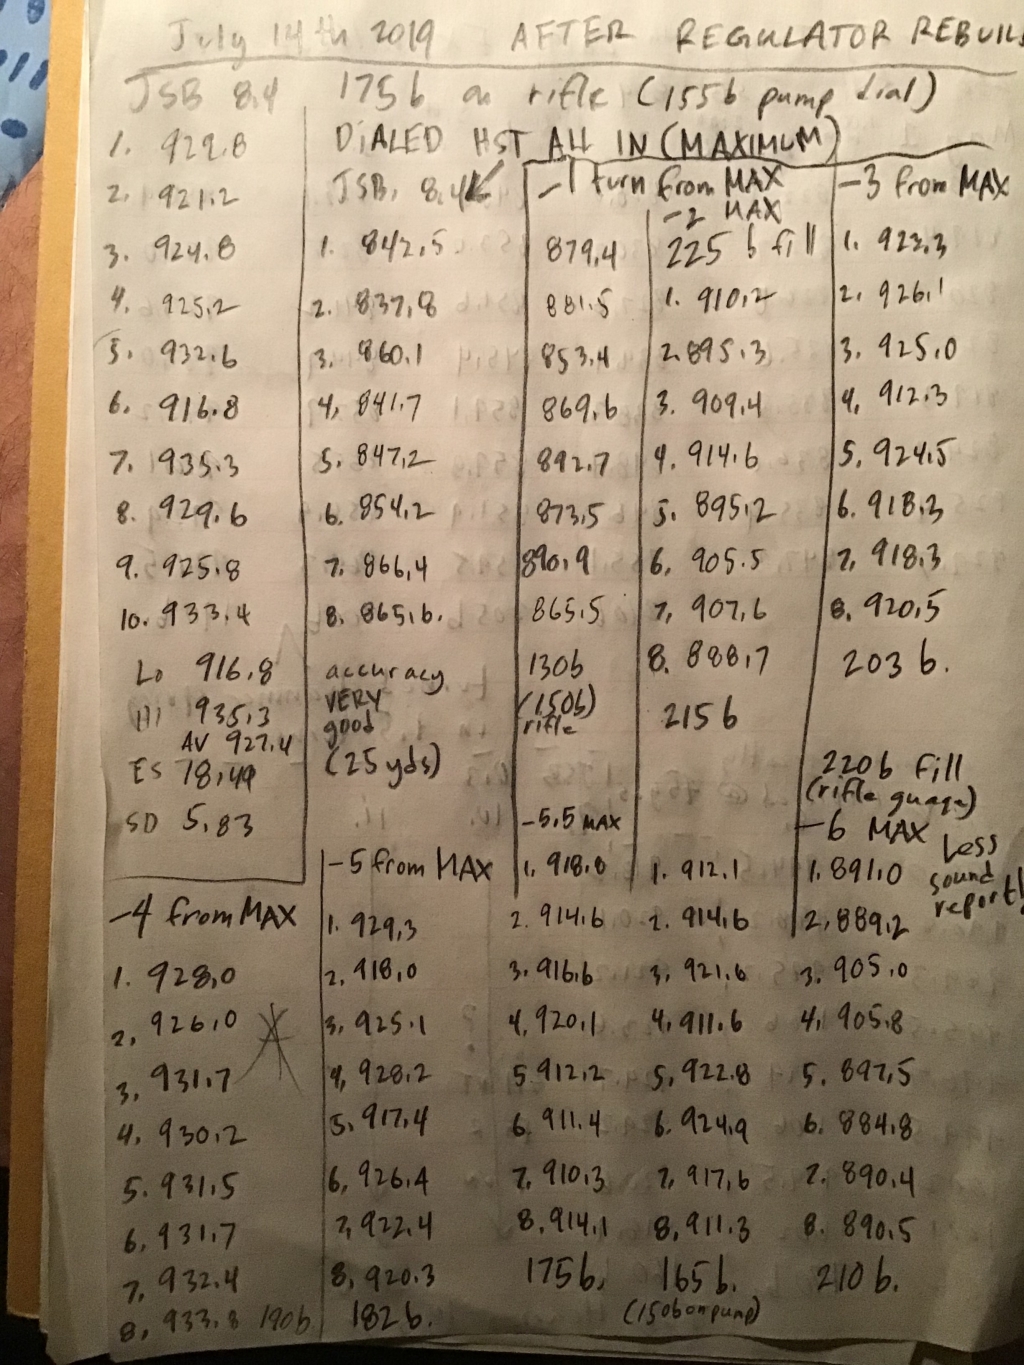 July 14th 2019 AFTER REGULATOR REBUIL
JSB 8.4 175b on rifle (155b pump dial)
DIALED HST ALL IN (MAXIMUM)
1. 922.8
2. 921.2
3. 924.8
4. 925.2
5. 932.6
6. 916.8
7. 935.3
8. 929.6
9. 925.8
10. 933.4
Lo 916.8
Hi 935.3
AV 927.4
ES 18.49
SD 5.83
JSB. 8.4
1. 842.5
2. 837.8
3. 860.1
4. 841.7
5. 847.2
6. 854.2
7. 866.4
8. 865.6.
accuracy
VERY
good
(25 yds)
-1 turn from MAX
879.4
881.5
853.4
869.6
892.7
873.5
890.9
865.5
130b
(150b)
rifle
-2 MAX
225 b fill
1. 910.2
2. 895.3
3. 909.4
4. 914.6
5. 895.2
6. 905.5
7. 907.6
8. 888.7
215b
-3 from MAX
1. 922.3
2. 926.1
3. 925.0
4. 912.3
5. 924.5
6. 918.3
7. 918.3
8. 920.5
203 b.
-4 from MAX
1. 928.0
2. 926.0
3. 931.7
4. 930.2
5. 931.5
6. 931.7
7. 932.4
8. 933.8 190b
-5 from MAX
1. 929.3
2. 918.0
3. 925.1
4. 928.2
5. 917.4
6. 926.4
7. 922.4
8. 920.3
182 b.
-5.5 MAX
1. 918.8
2. 914.6
3. 916.6
4. 920.1
5 912.2
6. 911.4
7. 910.3
8. 914.1
175b.
1. 912.1
2. 914.6
3. 921.6
4. 911.6
5. 922.8
6. 924.9
7. 917.6
8. 911.3
165b.
(150b on pump)
220b fill
(rifle guage)
-6 MAX
Less
sound
report!
1. 891.0
2. 889.2
3. 905.0
4. 905.8
5. 897.5
6. 884.8
7. 890.4
8. 890.5
210 b.